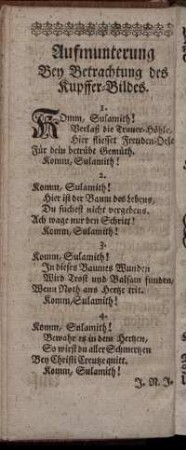 Aufmunterung
Bey Betrachtung des
Kupffer-Bildes.
1.
Komm, Sulamith!
Verlaß die Trauer-Höhle,
Hier fliesset Freuden-Oele
Für dein betrübt Gemüth.
Komm, Sulamith!
2.
Komm, Sulamith!
Hier ist der Baum des Lebens,
Du suchest nicht vergebens.
Ach wage nur den Schritt!
Komm, Sulamith!
3.
Komm, Sulamith!
In dieses Baumes Wunden
Wird Trost und Balsam funden,
Wenn Noth ans Hertze trit.
Komm, Sulamith!
4.
Komm, Sulamith!
Bewahr es in dem Hertzen,
So wirst du aller Schmertzen
Bey Christi Creutze quitt.
Komm, Sulamith!
J. N. J.